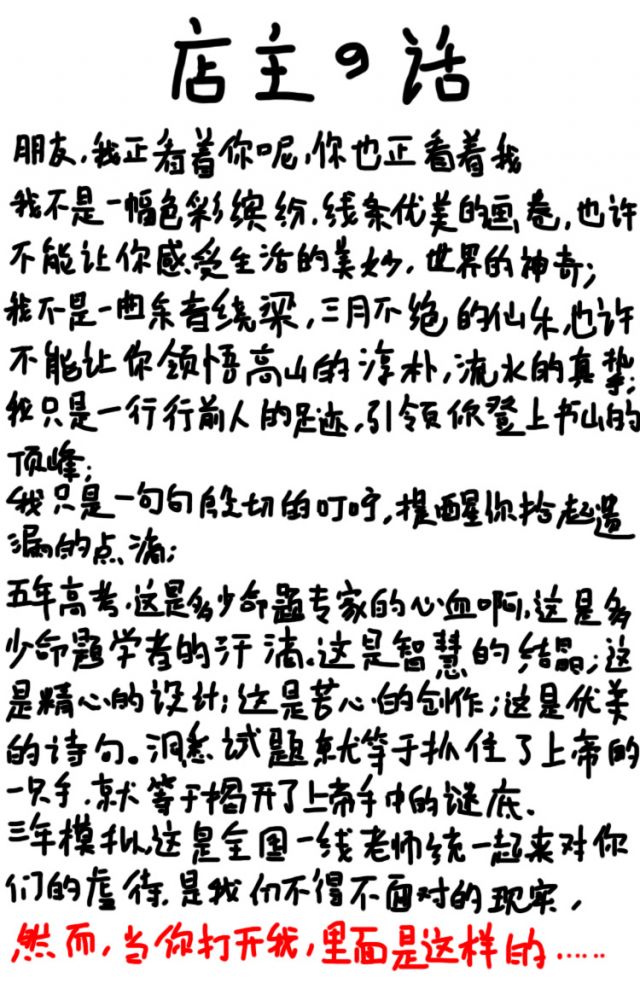 店主の话
朋友,我正看着你呢,你也正看着我
我不是一幅色彩缤纷,线条优美的画卷,也许
不能让你感受生活的美妙,世界的神奇;
我不是一曲余音绕梁,三月不绝的仙乐,也许
不能让你领悟高山的淳朴,流水的真挚;
我只是一行行前人的足迹,引领你登上书山的
顶峰;
我只是一句句殷切的叮咛,提醒你拾起遗
漏的点滴;
五年高考,这是多少命题专家的心血啊,这是多
少命题学者的汗滴。这是智慧的结晶;这
是精心的设计;这是苦心的创作;这是优美
的诗句。洞悉试题就等于抓住了上帝的
一只手,就等于揭开了上帝手中的谜底.
三年模拟,这是全国一线老师统一起来对你
们的虐待,是我们不得不面对的现实,
然而,当你打开我,里面是这样的……